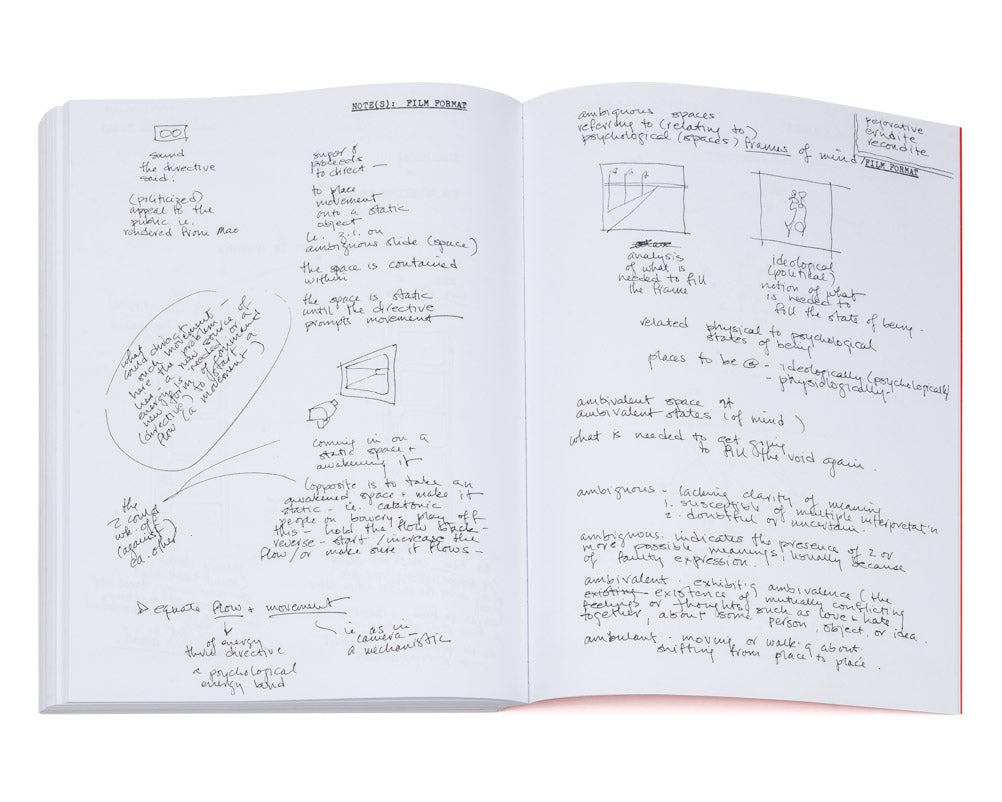 NOTE(S): FILM FORMAT
sound
the directive
said:
(politicized)
appeal to the
public i.e.
rendered from Mao
super 8
proceeds
to direct —
to place
movement
onto a static
object
i.e. z.i. on
ambiguous slide (space)
the space is contained
within
the space is static
until the directive
prompts movement
what
could direct
such movement
here the problem
has - a new source of
energy is needed or a
new form of command
(directive) to start a
flow (a movement)
coming in on a
static space +
awakening it
(opposite is to take an
awakened space + make it
static - i.e. catatonic
people on bowery + play off
this - hold the flow back -
reverse - start / increase the
flow / or make sure it flows -
the
2 could
wk. off
(against
ea. other)
equate flow + movement
of energy
third directive
a psychological
energy band
i.e. as in
camera -
a mechanistic
ambiguous spaces
referring to (relating to)
psychological (spaces) frames of mind
pejorative
erudite
recondite
/FILM FORMAT
analysis
of what is
needed to fill
the frame
ideological
(political)
notion of what
is needed to
fill the state of being -
related physical to psychological
states of being
places to be @ - ideologically (psychologically)
- physiologically -
ambivalent space
ambivalent states (of mind)
what is needed to get going
to fill the void again.
ambiguous - lacking clarity of meaning
1. susceptible of multiple interpretatn
2. doubtful or uncertain.
ambiguous. indicates the presence of 2 or
more possible meanings, usually because
of faulty expression.
ambivalent. exhibitig ambivalence (the
existing existence of mutually conflicting
feelings or thoughts, such as love + hate
together, about some person, object, or idea.
ambulant - moving or walkig about
shifting from place to place.